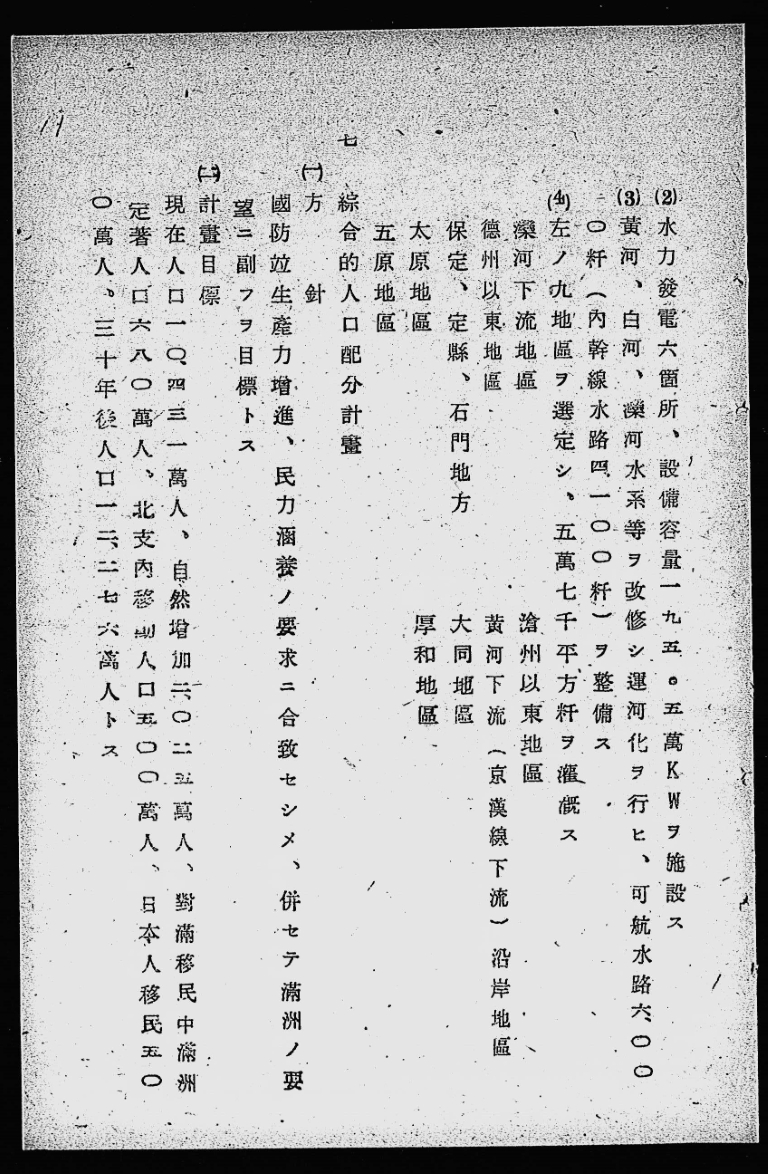 ⑵水力發電六箇所、設備容量一九五。五萬KWヲ施設ス
⑶黃河、白河、灤河水系等ヲ改修シ運河化ヲ行ヒ、可航水路六、〇〇
〇粁(內幹線水路四一〇〇粁)ヲ整備ス
⑷左ノ九地區ヲ選定シ、五萬七千平方粁ヲ灌漑ス
灤河下流地區 滄州以東地區
德州以東地區 黃河下流(京漢線下流)沿岸地區
保定、定縣、石門地方 大同地區
太原地區 厚和地區
五原地區
七 綜合的人口配分計畫
㈠方針
國防竝生產力增進、民力涵養ノ要求ニ合致セシメ、併セテ滿洲ノ要
望ニ副フヲ目標トス
㈡計畫目標
現在人口一〇、四三一萬人、自然增加二、〇二五萬人、對滿移民中滿洲
定著人口六八〇萬人、北支內移動人口五〇〇萬人、日本人移民五〇
〇萬人、三十年後人口一二、二七六萬人トス
11